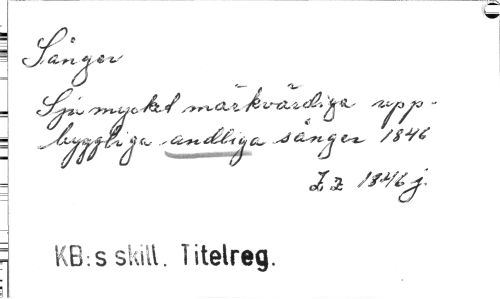 Sånger
Sju mycket märkvärdiga upp-
byggliga andliga sånger 1846
Zz 1846 j.
KB:s skill. Titelreg.